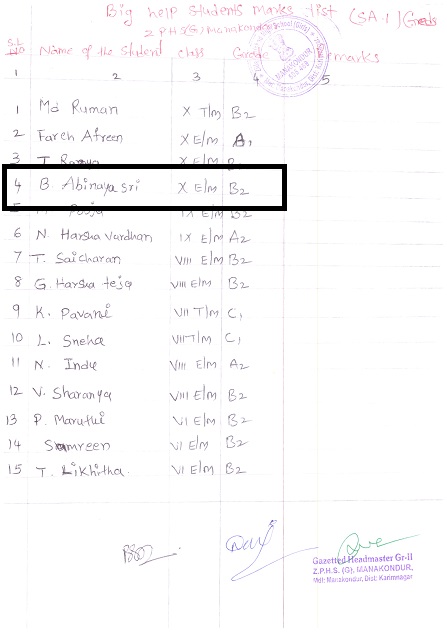 Big help students marks list (SA-1) Grades
Z P H S (G) Manakondur
S.L No Name of the Student class Grade remarks
1 2 3 4 5
1 Md Ruman X T/m B2
2 Fareh Afreen X E/m A1
3 T. Ramya X E/m
4 B. Abinaya sri X E/m B2
5 Pooja IX E/m B2
6 N. Harsha vardhan IX E/m A2
7 T. Saicharan VIII E/m B2
8 G. Harsha teja VIII E/m B2
9 K. Pavani VII T/m C1
10 L. Sneha VII T/m C1
11 N. Indu VIII E/m A2
12 V. Sharanya VIII E/m B2
13 P. Maruthi VI E/m B2
14 Samreen VI E/m B2
15 T. Likhitha. VI E/m B2
Gazetted Headmaster Gr-II
Z.P.H.S. (G). MANAKONDUR,
Mdl: Manakondur, Dist: Karimnagar